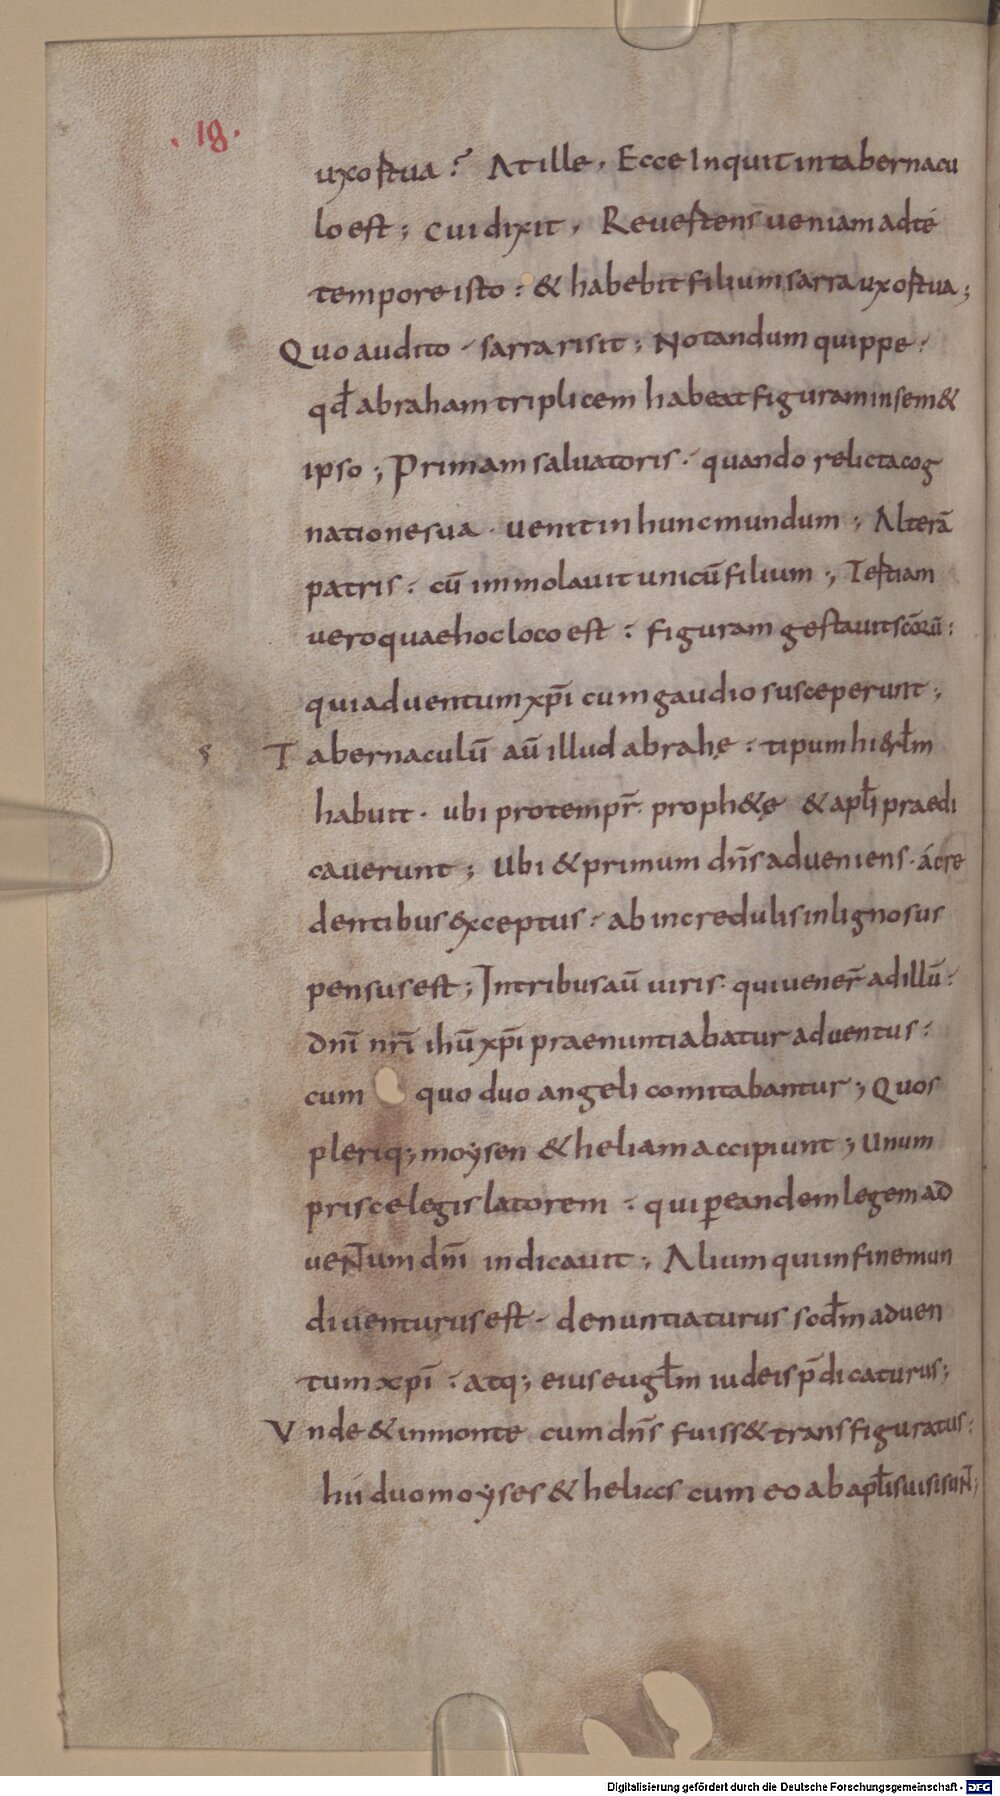 .18.
uxor tua? At ille, Ecce Inquit in tabernacu
lo est; cui dixit, Revertens veniam ad té
tempore isto: & habebit filium sarra uxor tua;
Quo audito - sarra risit; Notandum quippe:
qđ abraham triplicem habeat figuram in sem&
ipso; Primam salvatoris. quando relicta cog
natione sua. venit in hunc mundum; Alterā
patris: cū immolavit unicū filium; Tertiam
vero quae hoc loco est: figuram gestavit scōrū:
qui adventum xp̄i cum gaudio susceperunt;
8 Tabernaculū aū illud abrahę: tipum hierłm
habuit. ubi pro tempr̄. proph&ę & apłi praedi
caverunt; Ubi & primum dn̄s adveniens. á cre
dentibus exceptus: ab incredulis in ligno sus
pensus est; In tribus aū viris: qui vener̄ ad illū:
dnī nrī ihū xp̄i praenuntiabatur adventus:
cum quo duo angeli comitabantur; Quos
pleriq; moẏsen & heliam accipiunt; Unum
prisce legis latorem: qui ꝑ eandem legem ad
veñtum dnī indicavit; Alium qui in fine mun
di venturus est - denuntiaturus scđm adven
tum xp̄i: atq; eius eugłm iudeis p̄dicaturus;
Unde & in monte cum dn̄s fuiss& transfiguratus:
hii duo moẏses & helias cum eo ab apłis visi sun̄t;
Digitalisierung gefördert durch die Deutsche Forschungsgemeinschaft - DFG